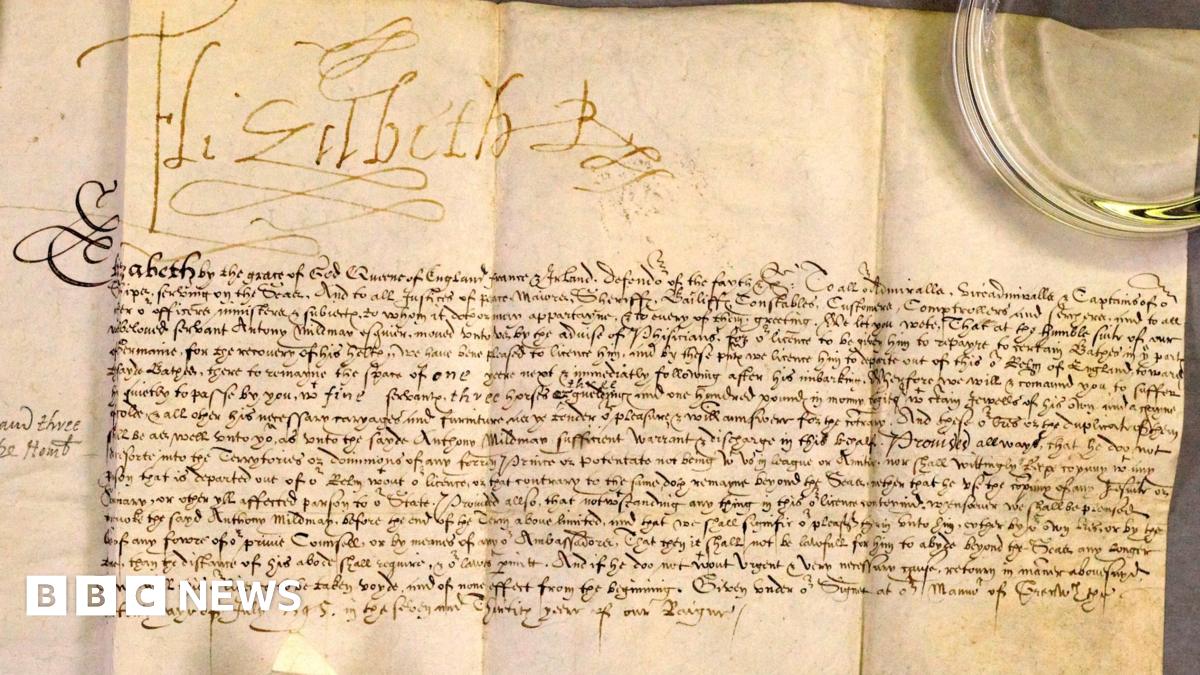 Elizabeth R
Elizabeth by the grace of God Queene of England france & Irland, defendor of the fayth &c. To all Admiralls, viceadmiralls & Captains of
Shipps serving on the Seas, And to all Justices of peace Maiors, Sheriffs, Bailiffs, Constables, Customers, Comptrollers and Serchers, and to all
other officers ministers & subiects, to whom it doth or may appartaine, & to every of them, greeting. We let you wete, That at the humble sute of our
welbeloved servant Antony Mildmay esquier, moved unto us by the advise of Phisicians, for licence to be given him to repayre to certain Bathes in
Germanie, for the recovery of his helth, We have bene pleased to licence him, and by these we licence him to departe out of this Realm of England toward
sayde Bathes, there to remayne the space of one yeere next & immediatly following after his imbarking. Wherfore we will & comaund you to suffer
quietly to passe by you, wt five servants, three horses and one hundred pounds in mony certein Jewells of his own and
golde & all other his necessary caryages and furniture, as ye tender pleasure, & will aunswere for the contrary. And these or the duplicate of them
shall be as well unto yo, as unto the sayde Anthony Mildmay sufficient Warrant & discharge in this behalf. Provided allways, that he doo not
resorte into the Territories or dominions of any forren Prince or Potentate not being wt us in league or Amitie, nor shall wittingly kepe company wt any
person that is departed out of Realm wtout licence, or that contrary to the same doth remayne beyond the Seas, nether that he use the company of any Jesuite or
Seminary, or other yll affected parson to State. Provided allso, that notwtstanding any thing in this licence conteined, whensoever we shall be pleased
revoke the sayd Anthony Mildmay, before the end of the Term above limited, and that we shall signifie pleasure therin unto him, eyther by own or by the
of any fowre of privie Counsel, or by meanes of any Ambassadors, That then it shall not be lawfull for him to abyde beyond the Seas any longer
time, then the distance of his abode shall require, & lawes permitt. And if he doo not wtout Urgent & very necessary cause, retorn in maner abovesayd
taken voyde, and of none effect from the beginning. Given under Signet at Mannor of Grenwch the
1595. in the seven and Thirtity yeer of our Raigne
and three
BBC NEWS